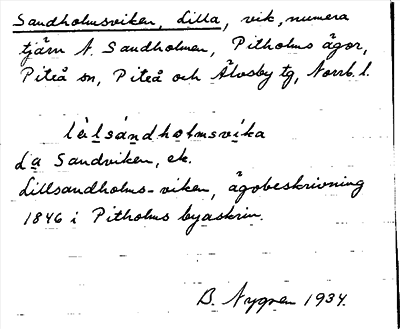 Sandholmsviken, Lilla, vik, numera
tjärn N. Sandholmen, Pitholms ägor,
Piteå sn, Piteå och Älvsby tg, Norrb. l.
lìlsándhòlmsvíka
La Sandviken, ek.
Lillsandholms-viken, ägobeskrivning
1846 i Pitholms byaskrin.
B. Nygren 1934.